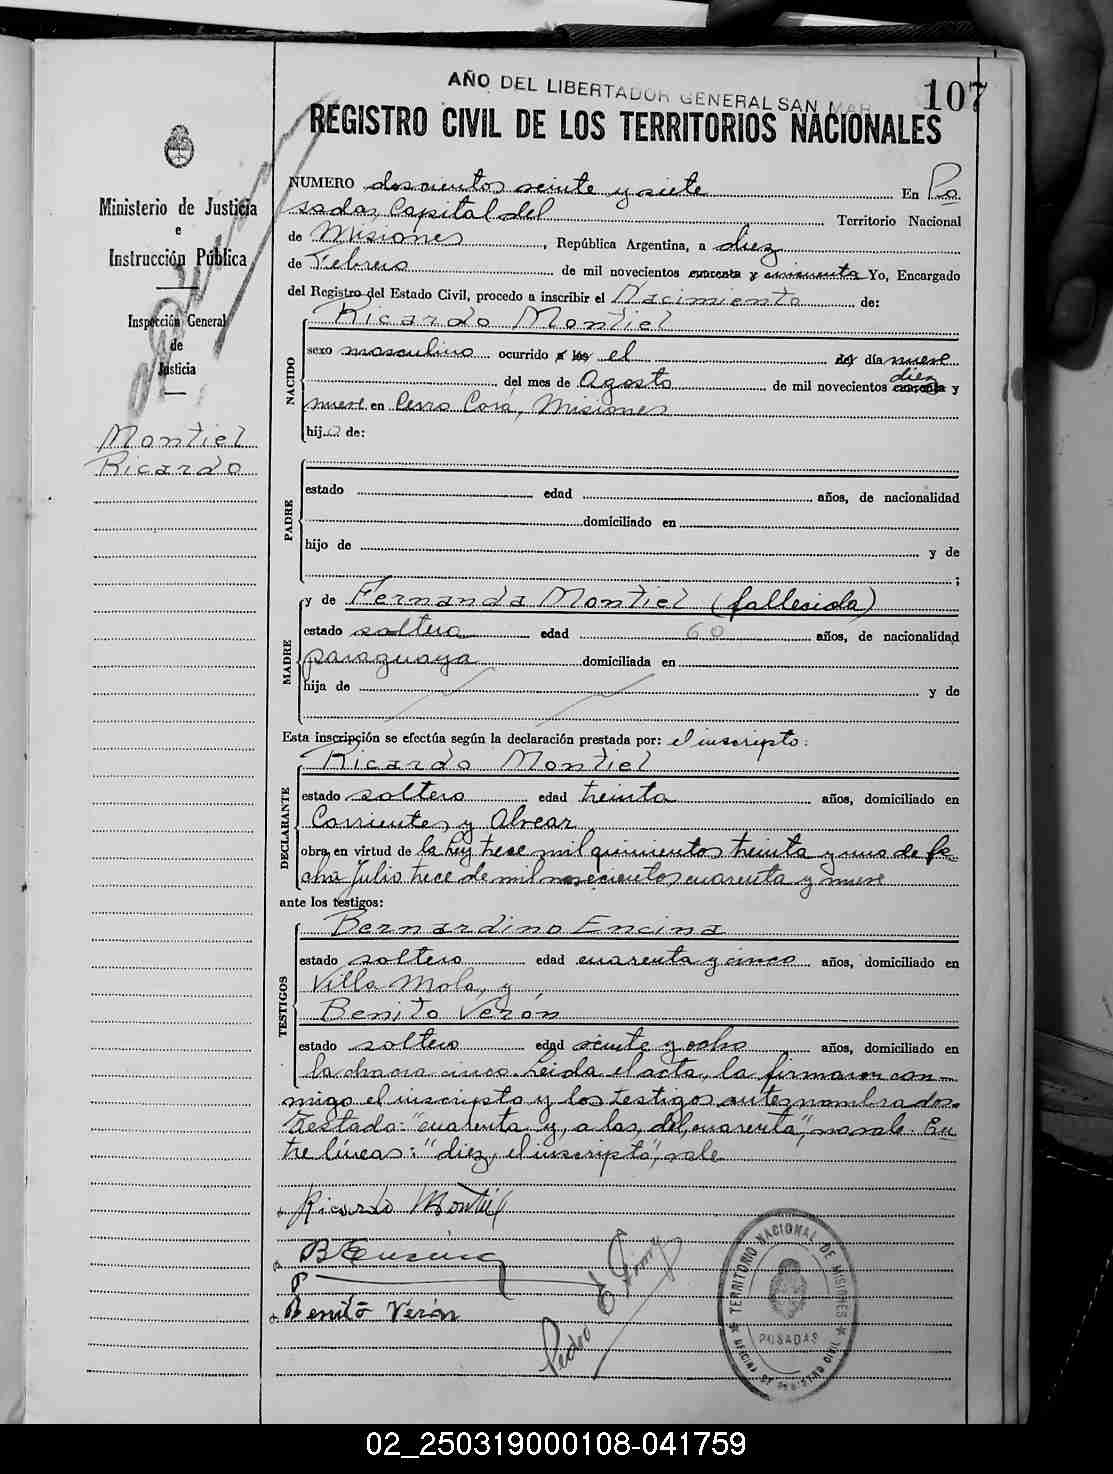 AÑO DEL LIBERTADOR GENERAL SAN MAR
107
REGISTRO CIVIL DE LOS TERRITORIOS NACIONALES
Ministerio de Justicia
e
Instrucción Pública
Inspección General
de
Justicia
Montiel
Ricardo
NUMERO doscientos veinte y siete En Po
sadas, Capital del Territorio Nacional
de Misiones, República Argentina, a diez
de Febrero de mil novecientos cuarenta y cincuenta Yo, Encargado
del Registro del Estado Civil, procedo a inscribir el Nacimiento de:
NACIDO
Ricardo Montiel
sexo masculino ocurrido a las el del día nueve
diez
del mes de Agosto de mil novecientos cuarenta y
nueve en Cerro Corá, Misiones
hijo de:
PADRE
estado edad años, de nacionalidad
domiciliado en
hijo de y de
;
MADRE
y de Fernanda Montiel (fallecida)
estado soltera edad 60 años, de nacionalidad
paraguaya domiciliada en
hija de y de
Esta inscripción se efectúa según la declaración prestada por: el inscripto:
DECLARANTE
Ricardo Montiel
estado soltero edad treinta años, domiciliado en
Corrientes y Alvear
obra en virtud de la Ley trece mil quinientos treinta y uno de fe
cha Julio trece de mil novecientos cuarenta y nueve
ante los testigos:
TESTIGOS
Bernardino Encina
estado soltero edad cuarenta y cinco años, domiciliado en
Villa Mola, y
Benito Verón
estado soltero edad veinte y ocho años, domiciliado en
la chacra cinco. Leida el acta, la firmaron con-
migo el inscripto y los testigos antes nombrados.
Testado: "cuarenta y, a las, del, cuarenta", no vale. En
tre líneas: "diez, el inscripto", vale
Ricardo Montiel
B Encina
Benito Verón
Pedro E
TERRITORIO NACIONAL DE MISIONES
POSADAS
OFICINA DE REGISTRO CIVIL
02_250319000108-041759